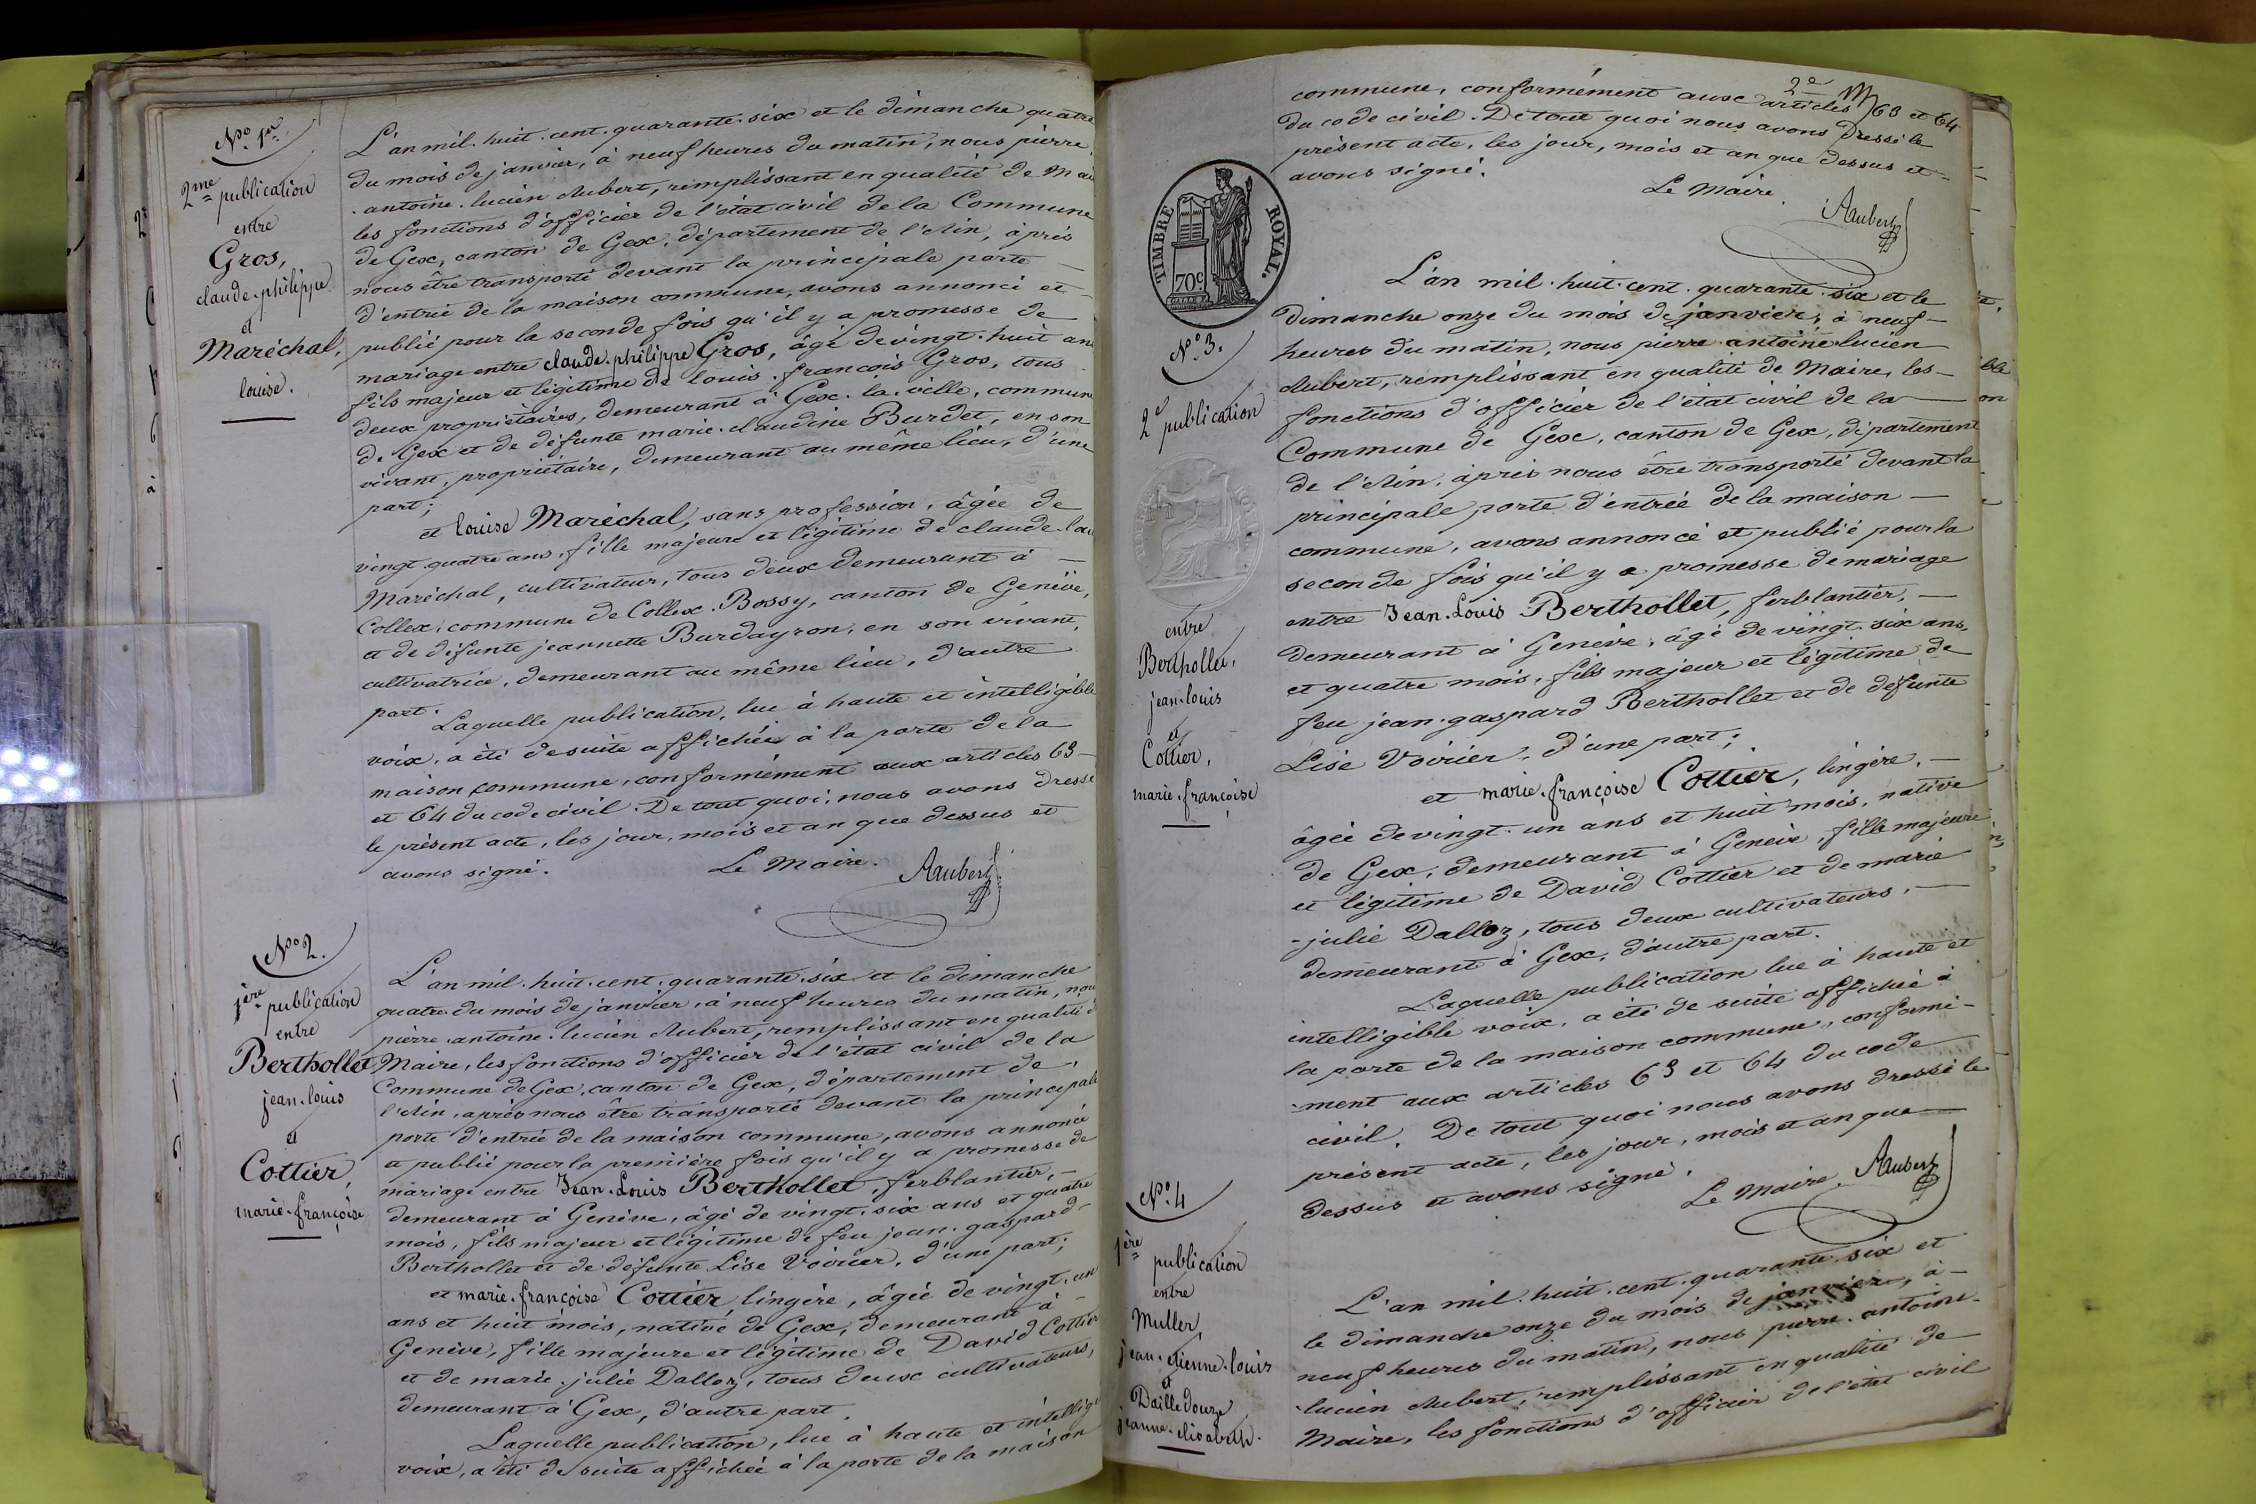 N.º 1er.
2me publication
entre
Gros,
claude-philippe
et
Maréchal,
louise.
L'an mil-huit-cent-quarante-six et le dimanche quatre
du mois de janvier, à neuf heures du matin, nous pierre
-antoine-lucien Aubert, remplissant en qualité de Mai
les fonctions d'officier de l'état civil de la Commune
de Gex, canton de Gex, département de l'Ain, après
nous être transporté devant la principale porte
d'entrée de la maison commune, avons annoncé et
publié pour la seconde fois qu'il y a promesse de
mariage entre claude-philippe Gros, âgé de vingt-huit an
fils majeur et légitime de louis-françois Gros, tous
deux propriétaires, demeurant à Gex-la-ville, commune
de Gex et de défunte marie-claudine Burdet, en son
vivant, propriétaire, demeurant au même lieu, d'une
part;
et louise Maréchal, sans profession, âgée de
vingt-quatre ans, fille majeure et légitime de claude-
Maréchal, cultivateur, tous deux demeurant à
Collex, commune de Collex-Bossy, canton de Genève,
et de défunte jeannette Burdayron, en son vivant,
cultivatrice, demeurant au même lieu, d'autre
part.
Laquelle publication, lue à haute et intelligible
voix, a été de suite affichée à la porte de la
maison commune, conformément aux articles 63
et 64 du code civil. De tout quoi, nous avons dressé
le présent acte, les jour, mois et an que dessus et
avons signé.
Le Maire. Aubert
N.º 2.
1ère publication
entre
Berthollet
jean-louis
et
Cottier,
marie-françoise
L'an mil-huit-cent-quarante-six et le dimanche
quatre du mois de janvier, à neuf heures du matin, nous
pierre-antoine-lucien Aubert, remplissant en qualité d
Maire, les fonctions d'officier de l'état civil de la
Commune de Gex, canton de Gex, département de
l'Ain, après nous être transporté devant la principale
porte d'entrée de la maison commune, avons annoncé
et publié pour la première fois qu'il y a promesse de
mariage entre Jean-Louis Berthollet, ferblantier,
demeurant à Genève, âgé de vingt-six ans et quatre
mois, fils majeur et légitime de feu jean-gaspard
Berthollet et de défunte Lise Voirier, d'une part;
et marie-françoise Cottier, lingère, âgée de vingt-un
ans et huit mois, native de Gex, demeurant à
Genève, fille majeure et légitime de David Cottier
et de marie-julie Dalloz, tous deux cultivateurs,
demeurant à Gex, d'autre part.
Laquelle publication, lue à haute et intellig
voix, a été de suite affichée à la porte de la maison
2e
commune, conformément aux articles 63 et 64
du code civil. De tout quoi nous avons dressé le
présent acte, les jour, mois et an que dessus et
avons signé.
Le Maire.
Aubert
TIMBRE ROYAL.
70c
N.º 3.
2e publication
entre
Berthollet,
jean-louis
et
Cottier,
marie-françoise
L'an mil-huit-cent-quarante-six et le
dimanche onze du mois de janvier, à neuf
heures du matin, nous pierre-antoine-lucien
Aubert, remplissant en qualité de Maire, les
fonctions d'officier de l'état civil de la
Commune de Gex, canton de Gex, département
de l'Ain, après nous être transporté devant la
principale porte d'entrée de la maison
commune, avons annoncé et publié pour la
seconde fois qu'il y a promesse de mariage
entre Jean-Louis Berthollet, ferblantier,
demeurant à Genève, âgé de vingt-six ans,
et quatre mois, fils majeur et légitime de
feu jean-gaspard Berthollet et de défunte
Lise Voirier, d'une part;
et marie-françoise Cottier, lingère,
âgée de vingt-un ans et huit mois, native
de Gex, demeurant à Genève, fille majeure
et légitime de David Cottier et de marie
-julie Dalloz, tous deux cultivateurs,
demeurant à Gex, d'autre part.
Laquelle publication lue à haute et
intelligible voix, a été de suite affichée à
la porte de la maison commune, conformé-
-ment aux articles 63 et 64 du code
civil. De tout quoi nous avons dressé le
présent acte, les jour, mois et an que
dessus et avons signé.
Le Maire. Aubert
N.º 4
1ère
publication
entre
Muller,
jean-etienne-louis
et
Dailledouze
jeanne-elisabeth.
L'an mil-huit-cent-quarante-six et
le dimanche onze du mois de janvier, à
neuf heures du matin, nous pierre-antoine-
lucien Aubert, remplissant en qualité de
Maire, les fonctions d'officier de l'état civil